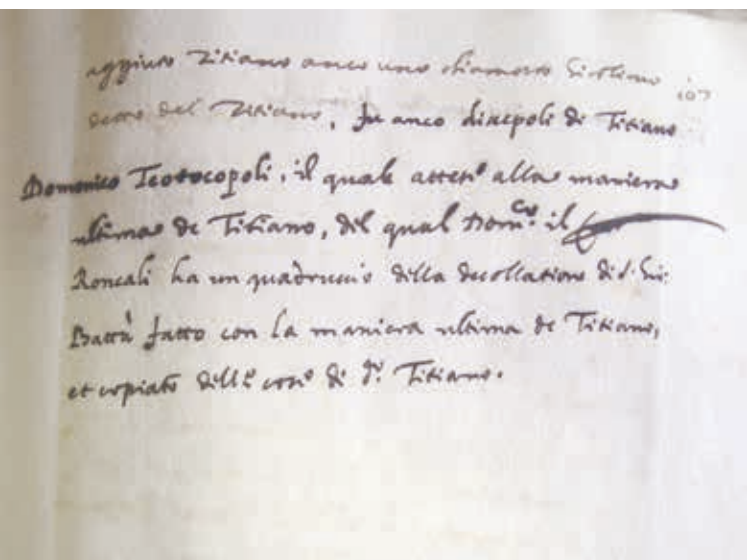 aggiuto Titiano anco uno chiamato Siciliano
detto del Titiano, fu anco discepoli di Titiano
Domenico Teotocopoli, il quale attese alla maniera
ultima de Titiano, del qual Dom.co il
Roncali ha un quadruccio della decollatione di S. Gio:
Batta fatto con la maniera ultima de Titiano,
et copiato delle cose di d.o Titiano.